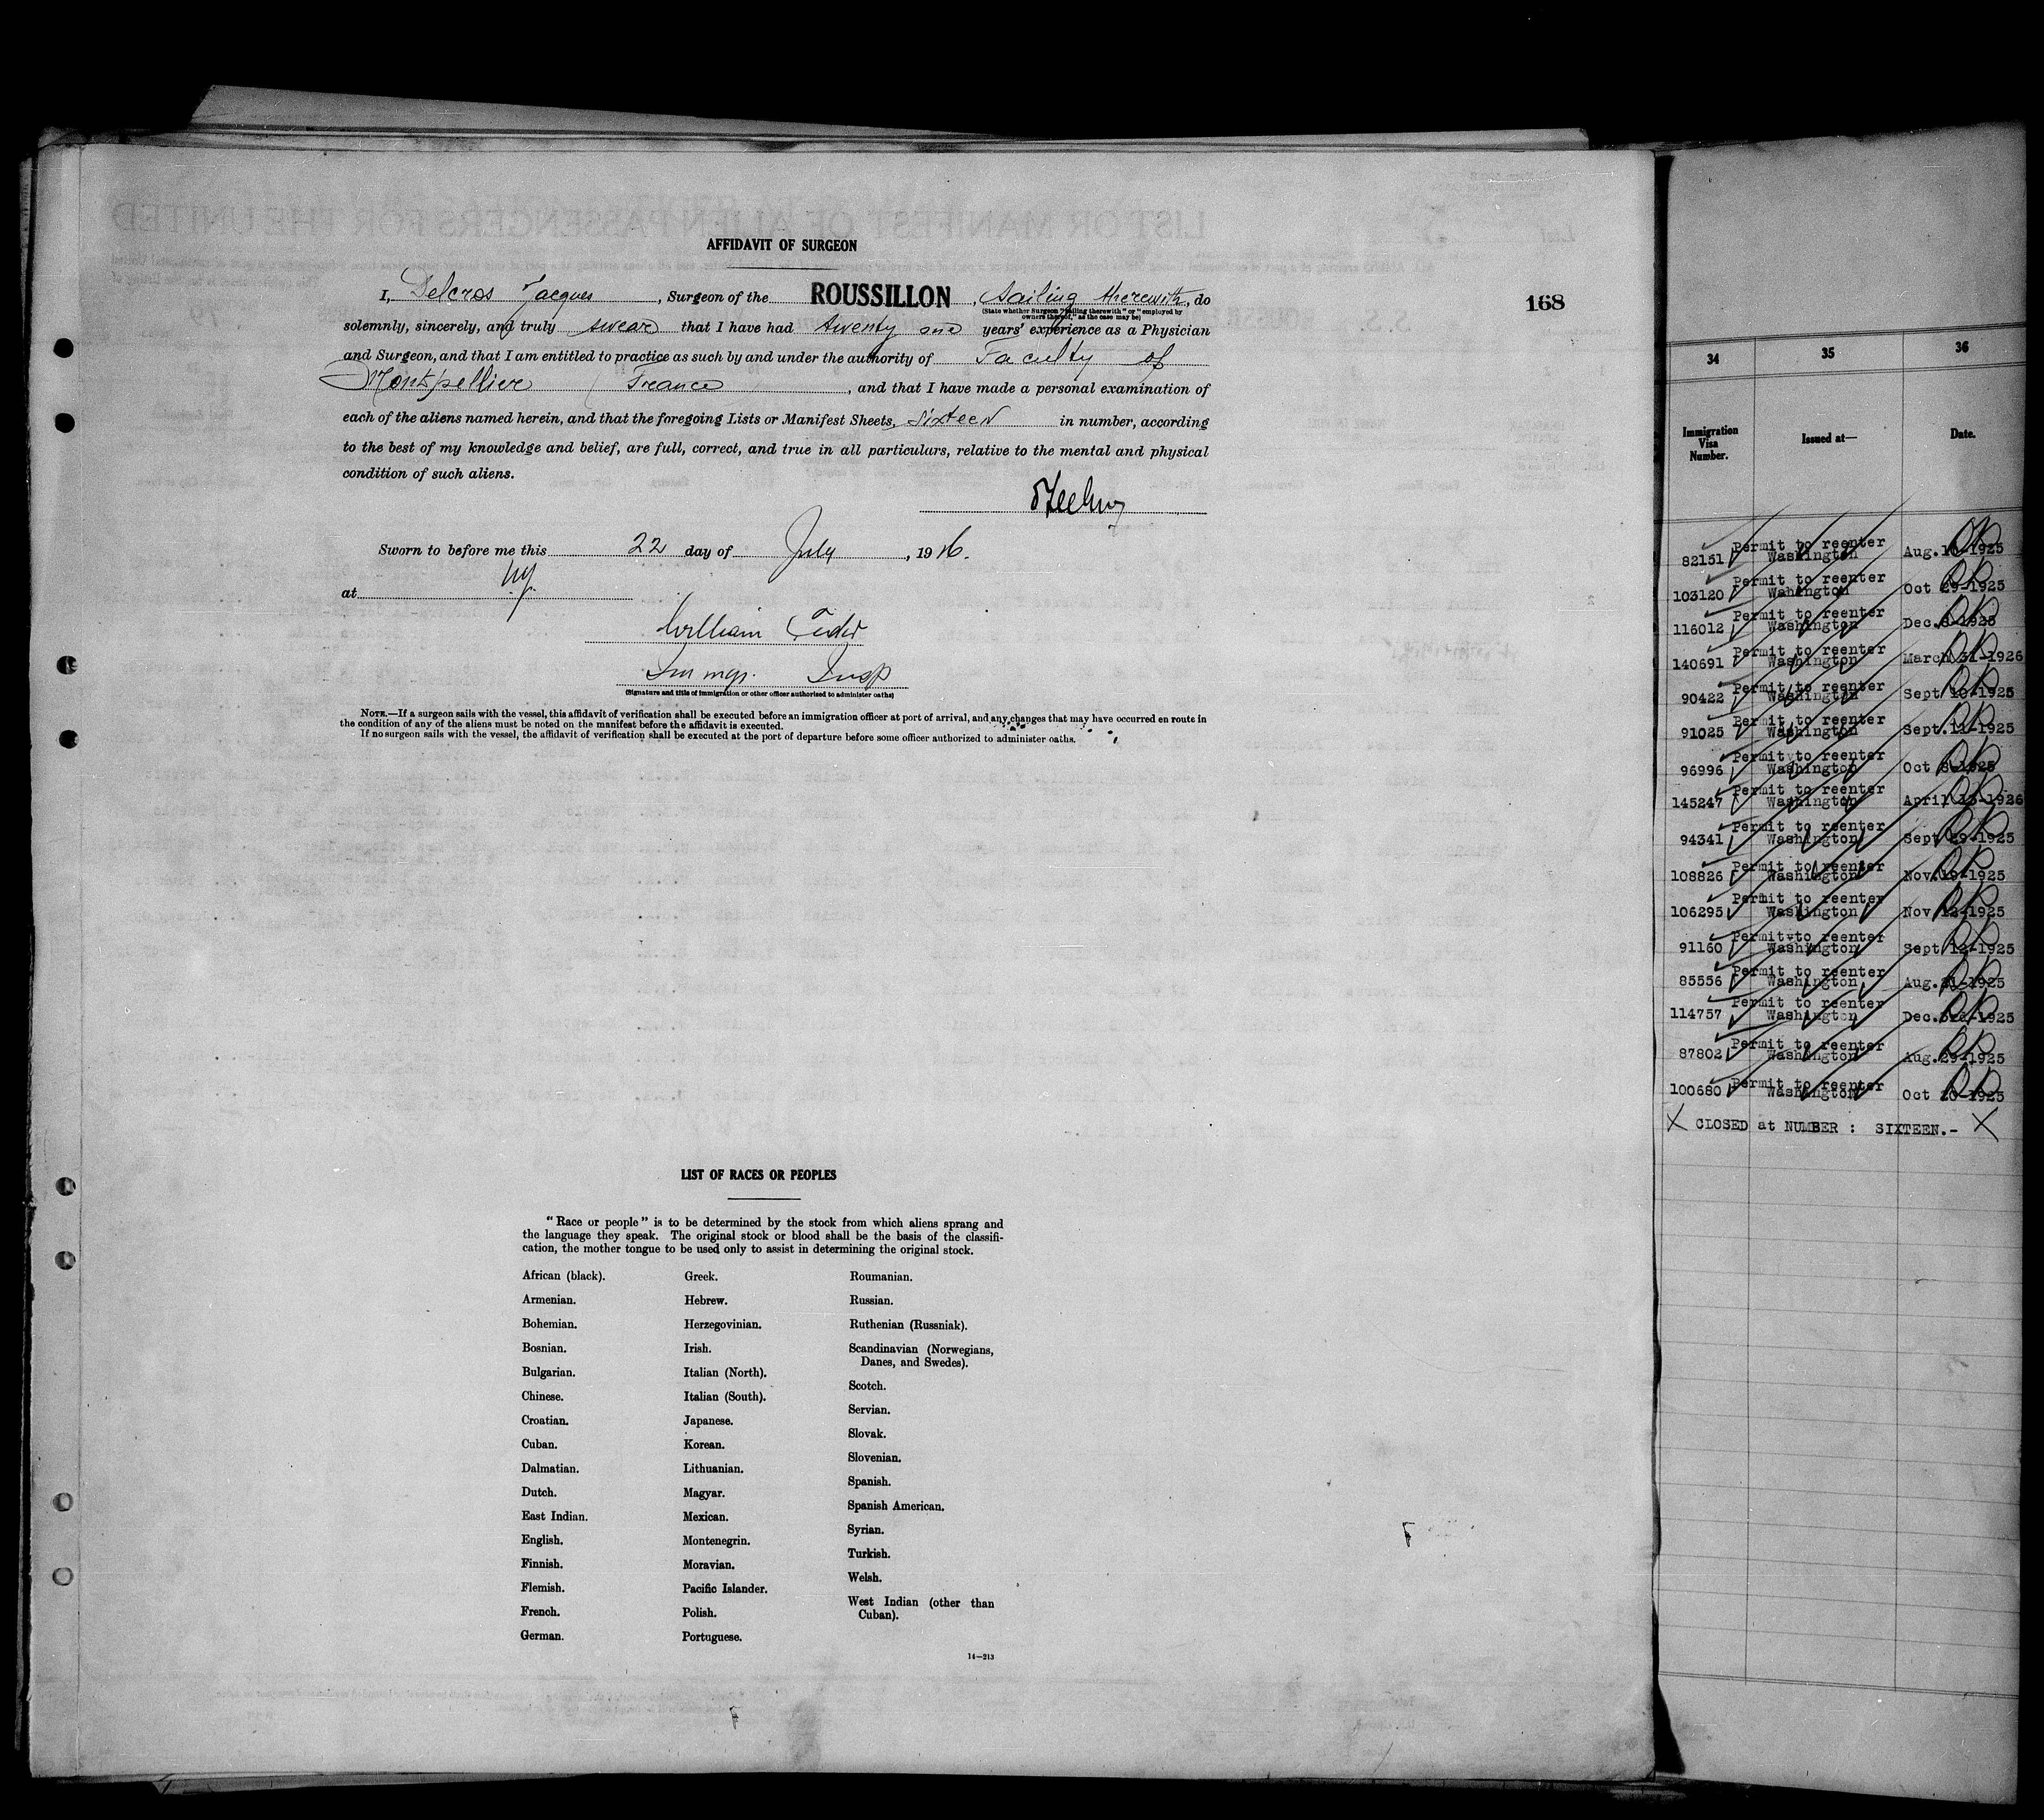 AFFIDAVIT OF SURGEON
I, Delcros Jacques, Surgeon of the ROUSSILLON, Sailing therewith, do
(State whether Surgeon "sailing therewith" or "employed by
owners thereof," as the case may be)
solemnly, sincerely, and truly swear that I have had twenty one years' experience as a Physician
and Surgeon, and that I am entitled to practice as such by and under the authority of Faculty of
Montpellier France, and that I have made a personal examination of
each of the aliens named herein, and that the foregoing Lists or Manifest Sheets, sixteen in number, according
to the best of my knowledge and belief, are full, correct, and true in all particulars, relative to the mental and physical
condition of such aliens.
Sworn to before me this 22 day of July, 1926.
at N.Y.
William
Immgr. Insp
(Signature and title of immigration or other officer authorized to administer oaths)
NOTE.—If a surgeon sails with the vessel, this affidavit of verification shall be executed before an immigration officer at port of arrival, and any changes that may have occurred en route in
the condition of any of the aliens must be noted on the manifest before the affidavit is executed.
If no surgeon sails with the vessel, the affidavit of verification shall be executed at the port of departure before some officer authorized to administer oaths.
168
LIST OF RACES OR PEOPLES
"Race or people" is to be determined by the stock from which aliens sprang and
the language they speak. The original stock or blood shall be the basis of the classifi-
cation, the mother tongue to be used only to assist in determining the original stock.
African (black).
Armenian.
Bohemian.
Bosnian.
Bulgarian.
Chinese.
Croatian.
Cuban.
Dalmatian.
Dutch.
East Indian.
English.
Finnish.
Flemish.
French.
German.
Greek.
Hebrew.
Herzegovinian.
Irish.
Italian (North).
Italian (South).
Japanese.
Korean.
Lithuanian.
Magyar.
Mexican.
Montenegrin.
Moravian.
Pacific Islander.
Polish.
Portuguese.
Roumanian.
Russian.
Ruthenian (Russniak).
Scandinavian (Norwegians,
Danes, and Swedes).
Scotch.
Servian.
Slovak.
Slovenian.
Spanish.
Spanish American.
Syrian.
Turkish.
Welsh.
West Indian (other than
Cuban).
14—213
34 35 36
Immigration
Visa
Number.
Issued at—
Date.
Permit to reenter
82151 Washington Aug. 10-1925
Permit to reenter
103120 Wahington Oct 29-1925
Permit to reenter
116012 Washington Dec. 8-1925
Permit to reenter
140691 Washington March 31-1926
Permit to reenter
90422 Washington Sept 10-1925
Permit to reenter
91025 Washington Sept. 11-1925
Permit to reenter
96996 Washington Oct 8-1925
Permit to reenter
145247 Washington April 13-1926
Permit to reenter
94341 Washington Sept 29-1925
Permit to reenter
108826 Washington Nov. 19-1925
Permit to reenter
106295 Washington Nov 12-1925
Permit to reenter
91160 Washington Sept 12-1925
Permit to reenter
85556 Washington Aug. 21-1925
Permit to reenter
114757 Washington Dec. 3rd-1925
Permit to reenter
87802 Washington Aug. 29-1925
Permit to reenter
100680 Washington Oct 20-1925
X CLOSED at NUMBER : SIXTEEN.- X